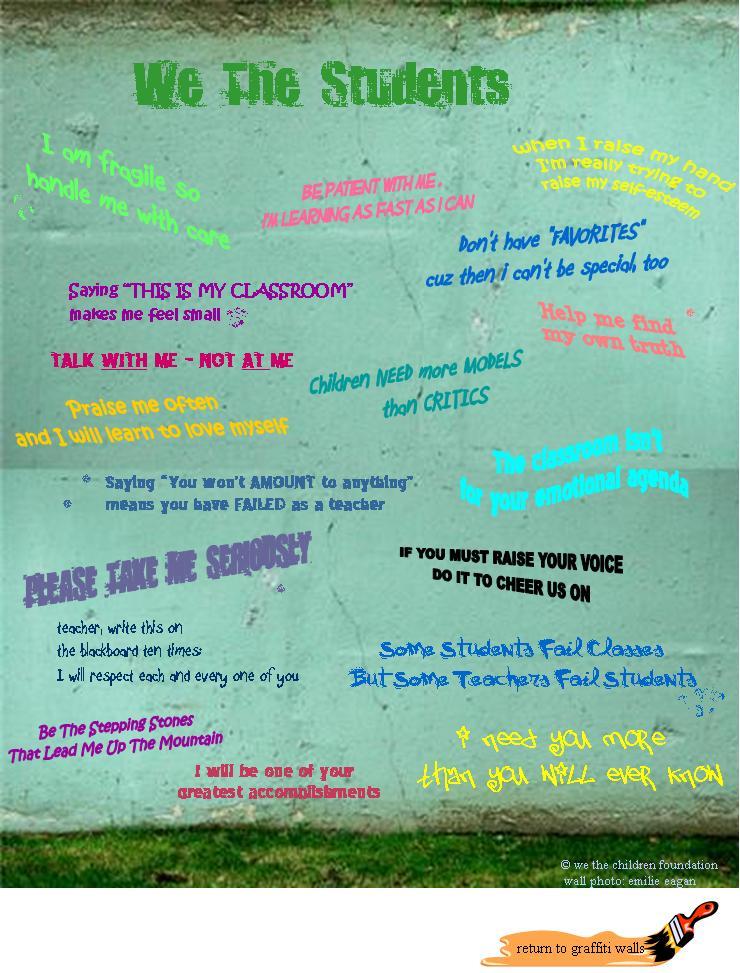 We The Students
I am fragile so
handle me with care
BE PATIENT WITH ME.
I'M LEARNING AS FAST AS I CAN
when I raise my hand
I'm really trying to
raise my self-esteem
Don't have "FAVORITES"
cuz then i can't be special, too
Saying "THIS IS MY CLASSROOM"
makes me feel small
Help me find
my own truth
TALK WITH ME - NOT AT ME
Children NEED more MODELS
than CRITICS
Praise me often
and I will learn to love myself
The classroom isn't
for your emotional agenda
Saying "You won't AMOUNT to anything"
means you have FAILED as a teacher
PLEASE TAKE ME SERIOUSLY
IF YOU MUST RAISE YOUR VOICE
DO IT TO CHEER US ON
teacher, write this on
the blackboard ten times:
I will respect each and every one of you
Some Students Fail Classes
But Some Teachers Fail Students
Be The Stepping Stones
That Lead Me Up The Mountain
I need you more
than you WILL ever know
I will be one of your
greatest accomplishments
© we the children foundation
wall photo: emilie eagan
return to graffiti walls